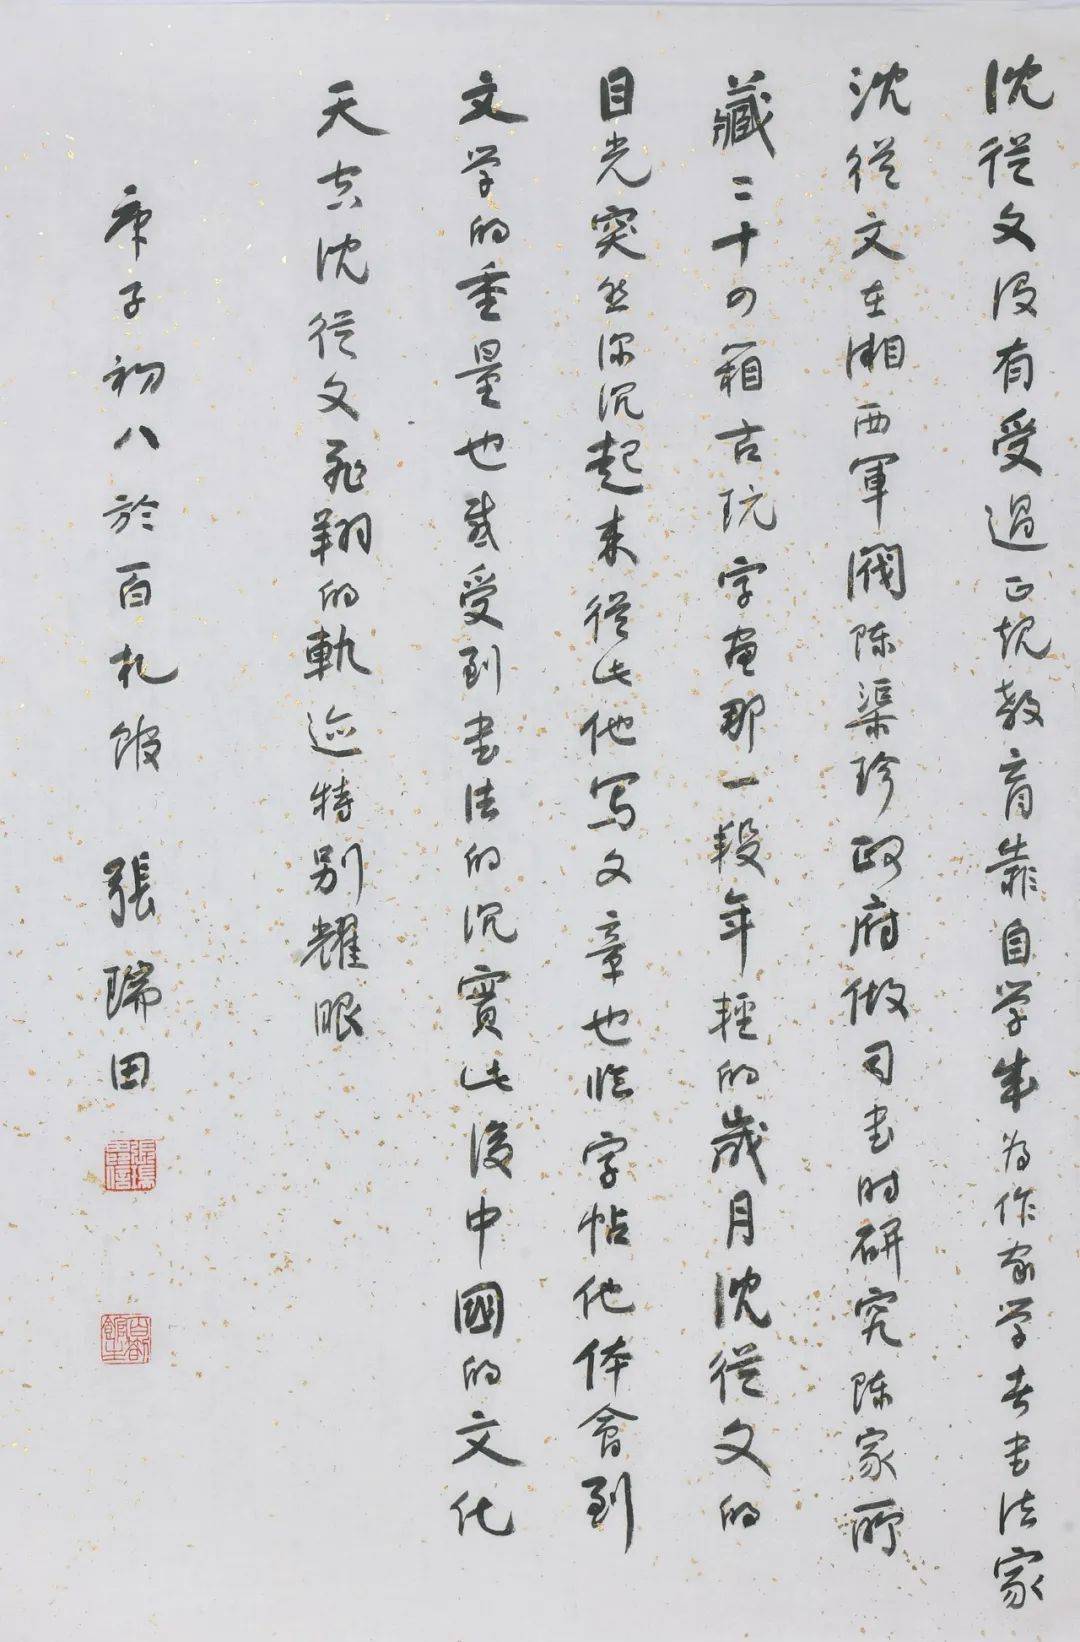 沈從文没有受過正規教育靠自学成为作家学者書法家
沈從文在湘西軍閥陈渠珍政府做司書时研究陈家所
藏二十四箱古玩字畫那一段年輕的歲月沈從文的
目光突然深沉起来從此他写文章也临字帖他体會到
文学的重量也感受到書法的沉實此後中國的文化
天空沈從文飛翔的軌迹特别耀眼
庚子初八於百札館 張瑞田